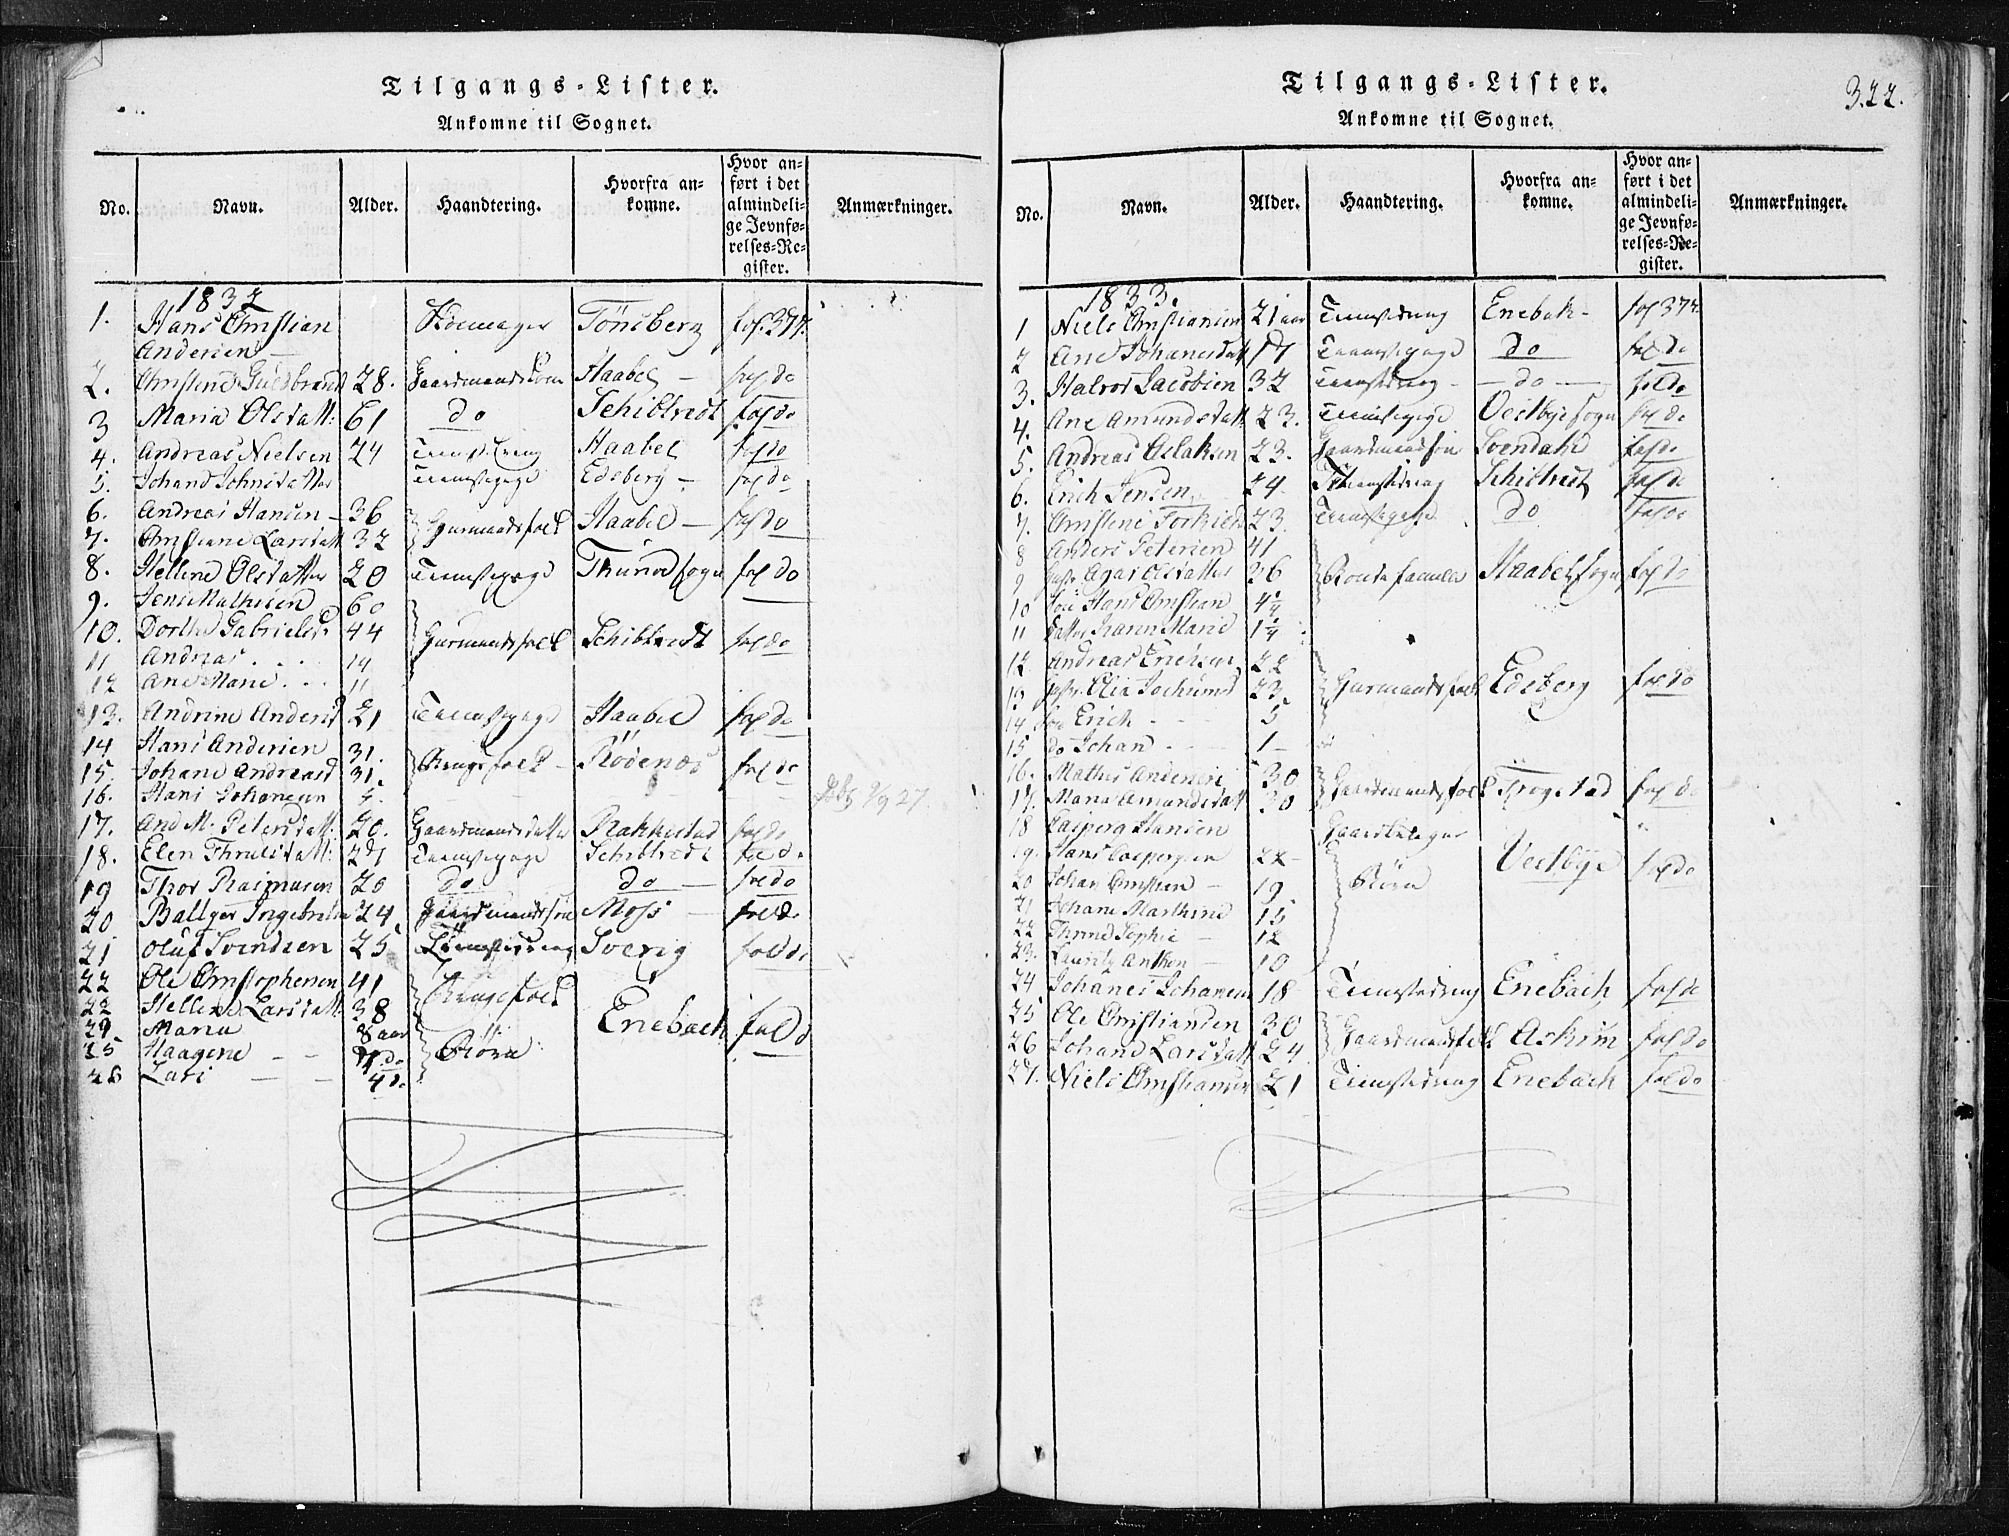 Tilgangs-Lister.
Ankomne til Sognet.
No. Navn. Alder. Haandtering. Hvorfra ankomne. Hvor anført i det almindelige Jevnførelses-Register. Anmærkninger.
1832
1. Hans Christian Andersen Tönsberg fol. 377.
2. Christene Guldbrand 28. Haabel fol do
3 Maria Olsdatt: 61 do Schibtvedt fol do
4. Andreas Nielsen 24 Haabel fol do
5. Johane Johnsdatter Edsberg fol do
6. Andreas Hansen 36 Gaardmandsfolk Haabel fol do
7. Christiane Larsdatt 32
8. Hellene Olsdatter 20 Tienestepige Thunøe sogn fol do
9. Jens Mathisen 60
10. Dorthe Gabrielsd 44 Gaardmandsfolk Schibtvedt fol do
11 Andreas 14
12 Ane Marie 11
13. Andrine Andersd 21 Tienestepige Haabel fol do
14 Hans Andersen 31.
15. Johane Andreasd 31. Rödenæs fol do
16. Hans Johansen
17. Ane M. Petersdatt: 20. Gaardmandsdatter Rakkestad fol do
18. Elen Thruelsdatt: 27 Tienestepige Schibtvedt fol do
19 Thor Rasmusen 20 do do fol do
20 Baltzer Ingebretsen 24 Gaardmandssøn Moss fol do
21 Oluf Svendsen 25 Tienestedreng Sverig fol do
22 Ole Christophersen 41
22 Hellene Larsdatt 38 Enebach fol do
24 Maria 8 aar
25 Haagene do Börn
26 Lars 4 do
Tilgangs-Lister.
322.
Ankomne til Sognet.
No. Navn. Alder. Haandtering. Hvorfra ankomne. Hvor anført i det almindelige Jevnførelses-Register. Anmærkninger.
1833.
1 Niels Christiansen 21 aar Tienestedreng Enebak fol 377.
2 Ane Johanesdatt 17 Tienestepige do fol do
3. Halvor Jacobsen 32 Tienestedreng do fol do
4. Ane Amundsdatt 23. Tienestepige Vestbye sogn fol do
5. Andreas Aslaksen 23. Gaardmandssön fol do
6. Erich Jensen 24 Tienestedreng Schibtvet fol do
7. Christene 23. Tienestepige do fol do
8 Anders Petersen 41
9 Olsdatter 36 Haabel sogn fol do
10 Hans Christian
11 Datter Karen Marie
12 Andreas Erichsen 22
13 23. Gaardmandsfolk Edsberg fol do
14 Erich 5
15 do Johan 1
16. Mathis Andersen 30
17. Maria Amundsdatt 30 Gaardmandsfolk Trögstad fol do
18 Casperg Hansen
19. Hans Caspersen
20 Johan Christian 19 Börn Vestbye fol do
21 Johane Marthine 15
22 Sophie 12
23. Lauritz Anthon 10
24 Johanes Johansen 18 Tienestedreng Enebach fol do
25 Ole Christiansen 30
26 Johane Larsdatt 24 Gaardmandsfolk Askim fol do
27. Niels Christiansen 21 Tienestedreng Enebach fol do